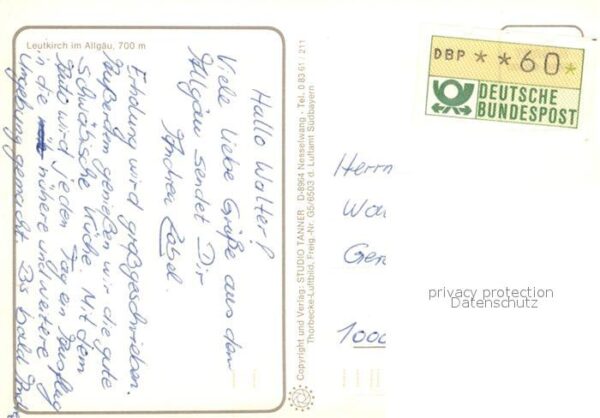 Leutkirch im Allgäu, 700 m
Hallo Walter!
Viele liebe Grüße aus dem
Allgäu sendet Dir
Andrea Zabel.
Erholung wird großgeschrieben.
Außerdem genießen wir die gute
Schwäbische Küche. Mit dem
Auto wird jeden Tag ein Ausflug
in die nähere und weitere
Umgebung gemacht. Bis bald
Copyright und Verlag: STUDIO TANNER D-8964 Nesselwang - Tel. 0 83 61 / 211
Thorbecke-Luftbild, Freig.-Nr. G5/6503 d. Luftamt Südbayern
DBP * * 60 *
DEUTSCHE
BUNDESPOST
Herrn
Wal
Ger
1000
privacy protection
Datenschutz